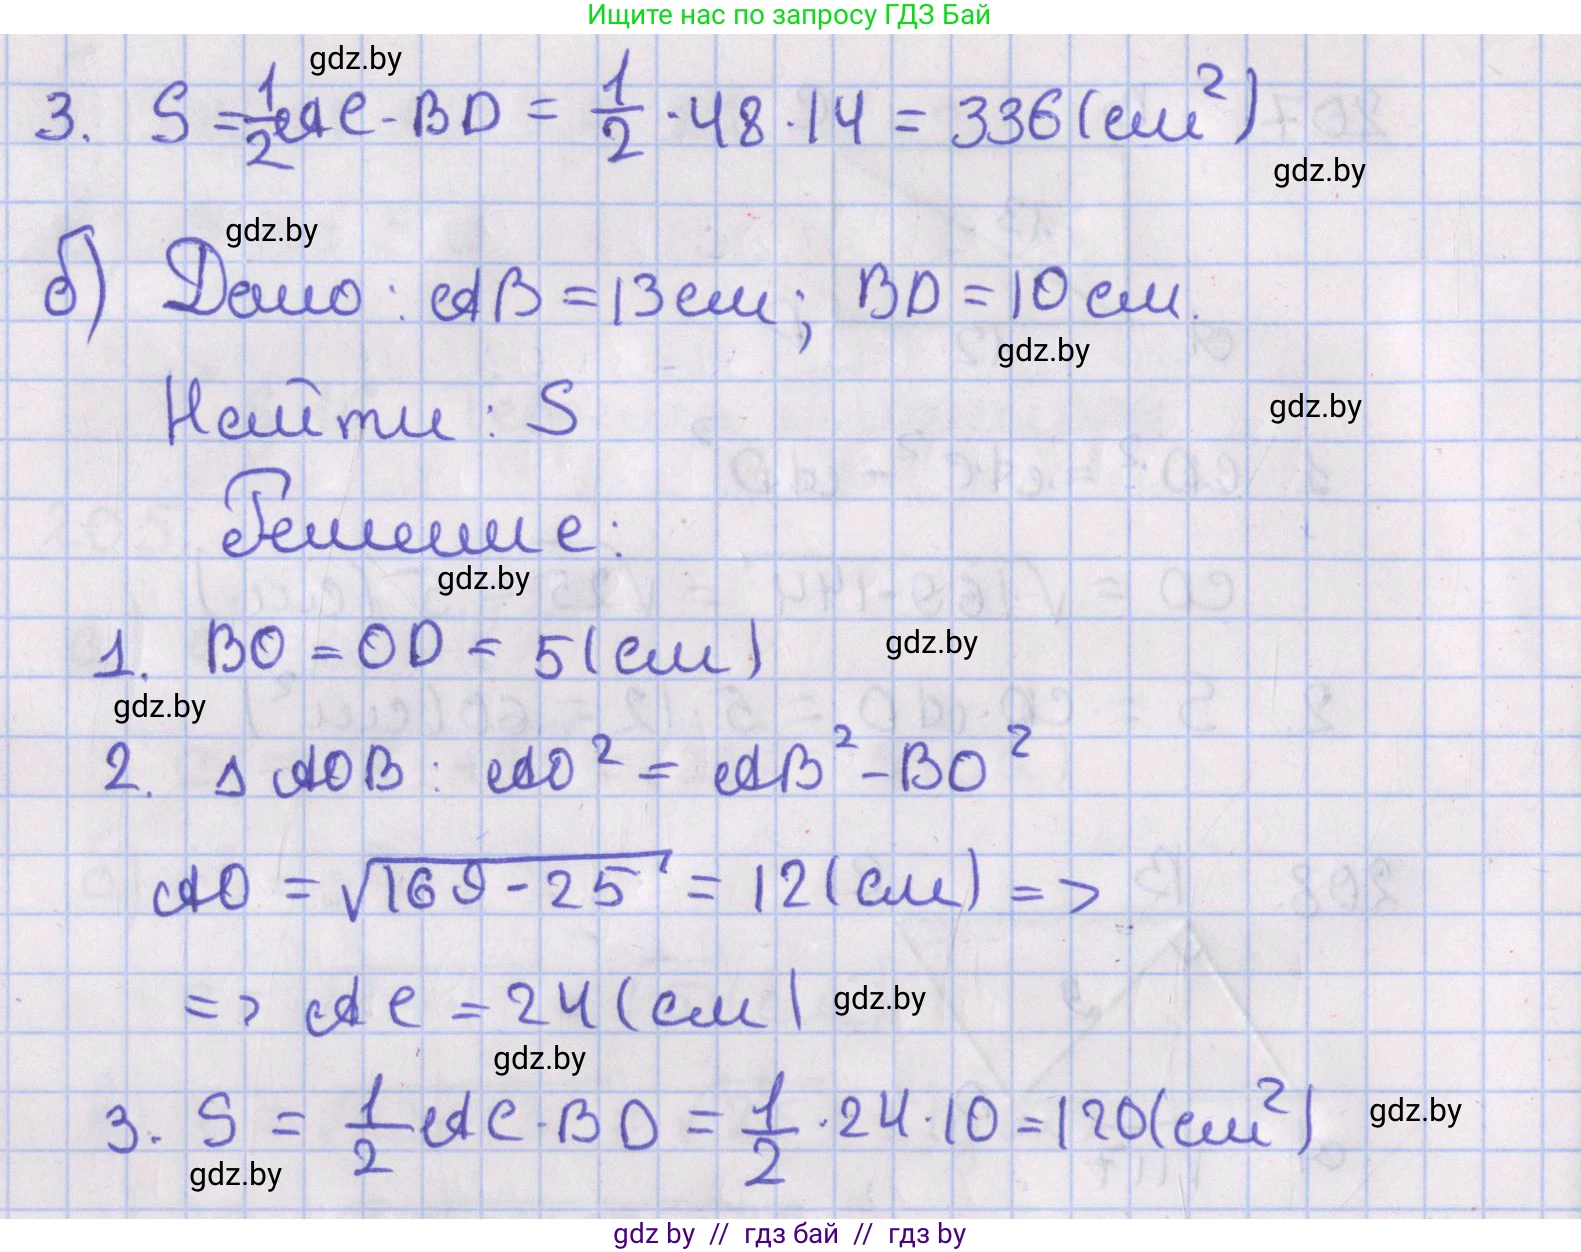 Ищите нас по запросу ГДЗ Бай
gdz.by
3. S = 1/2 AC · BD = 1/2 · 48 · 14 = 336 (см²)
gdz.by
gdz.by
б) Дано: AB = 13 см; BD = 10 см.
gdz.by
Найти: S
gdz.by
Решение:
gdz.by
1. BO = OD = 5 (см)
gdz.by
gdz.by
2. Δ AOB: AO² = AB² - BO²
AO = √169 - 25 = 12 (см) =>
=> AC = 24 (см)
gdz.by
gdz.by
3. S = 1/2 AC · BD = 1/2 · 24 · 10 = 120 (см²)
gdz.by
gdz.by
gdz by // гдз бай // гдз by